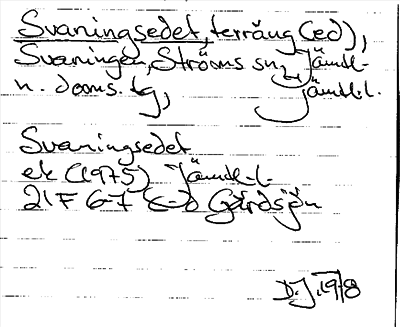 Svaningsedet, terräng (ed),
Svaningen, Ströms sn, Jämtl.
n. doms. tg, Jämtl.l.
Svaningsedet
ek (1975) Jämtl.l.
21F 6-7 c-d Gärdsjön
D.J. 1978